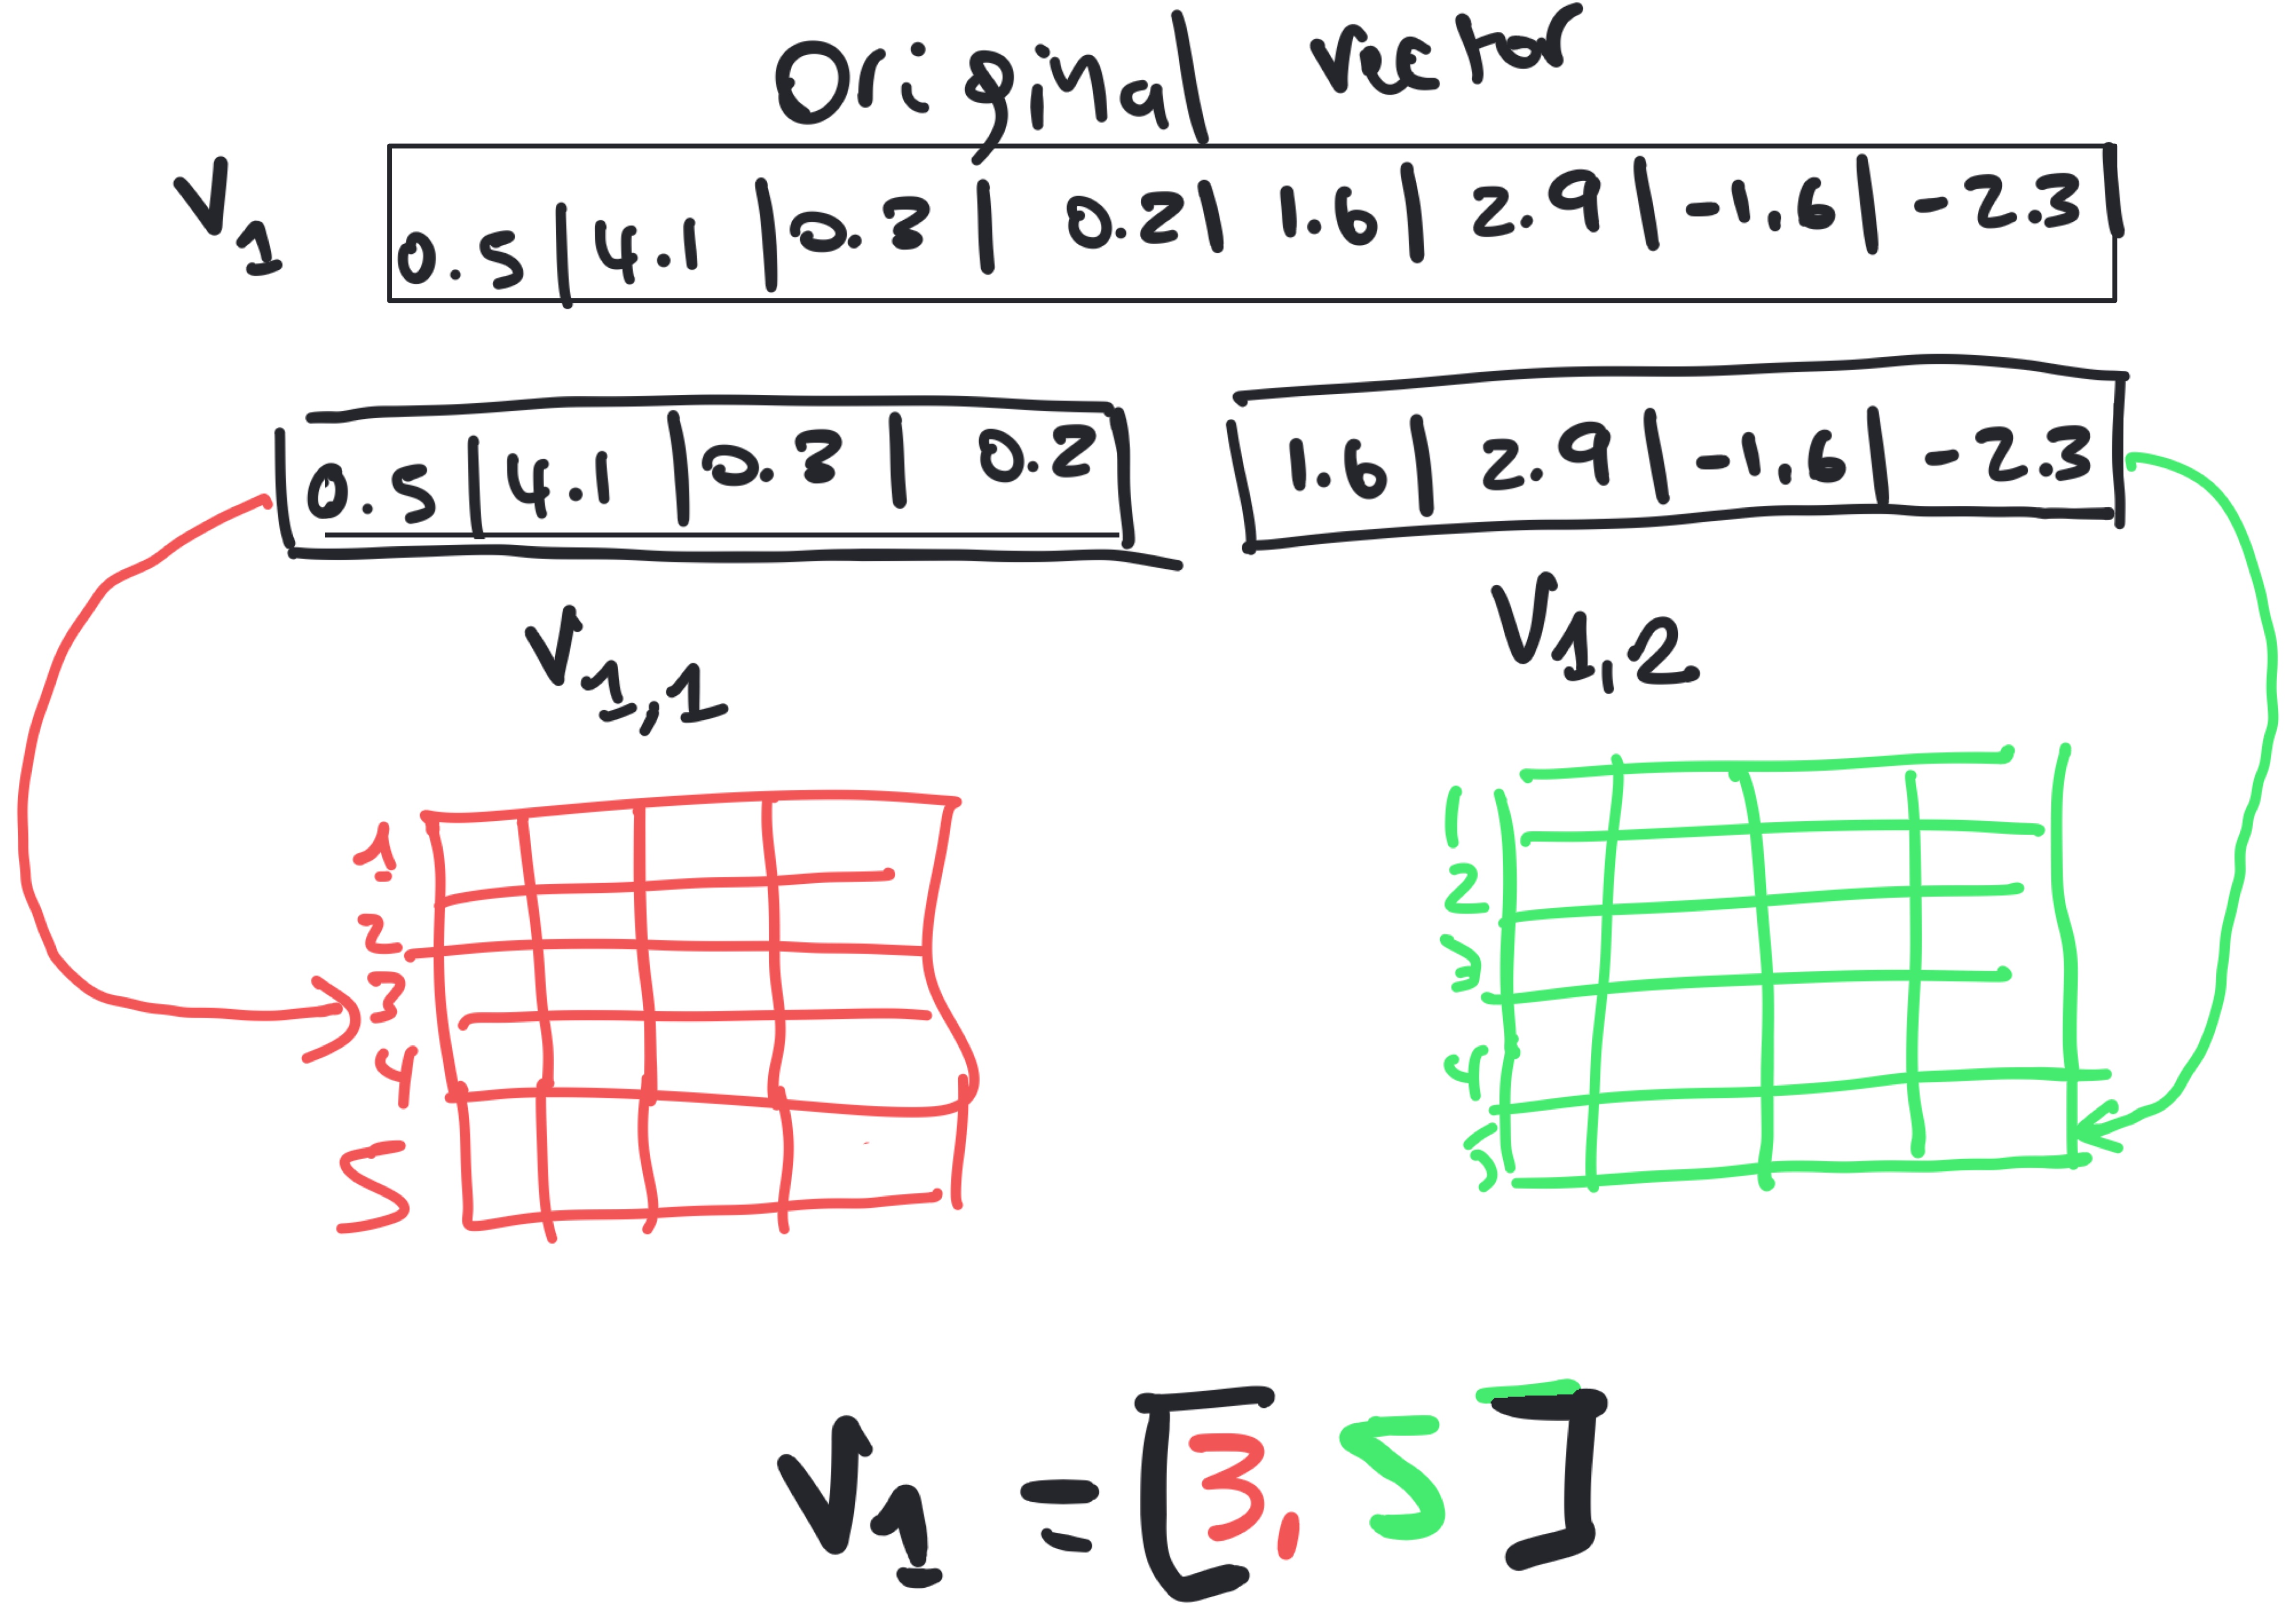 Original vector
V1 0.5 | 4.1 | 0.3 | 0.2 | 1.6 | 2.9 | -1.6 | -2.3 |
| 0.5 | 4.1 | 0.3 | 0.2 | | 1.6 | 2.9 | -1.6 | -2.3 |
V1,1 V1,2
1 1
2 2
3 3
4 4
5 5
V1 = [3, 5]